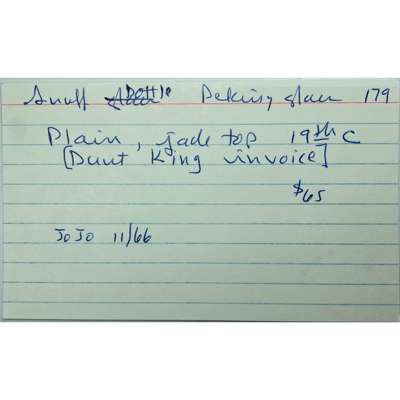 Snuff bottle Peking glass 179
Plain, jade top 19th C
[Dunt King invoice]
$65
JoJo 11/66